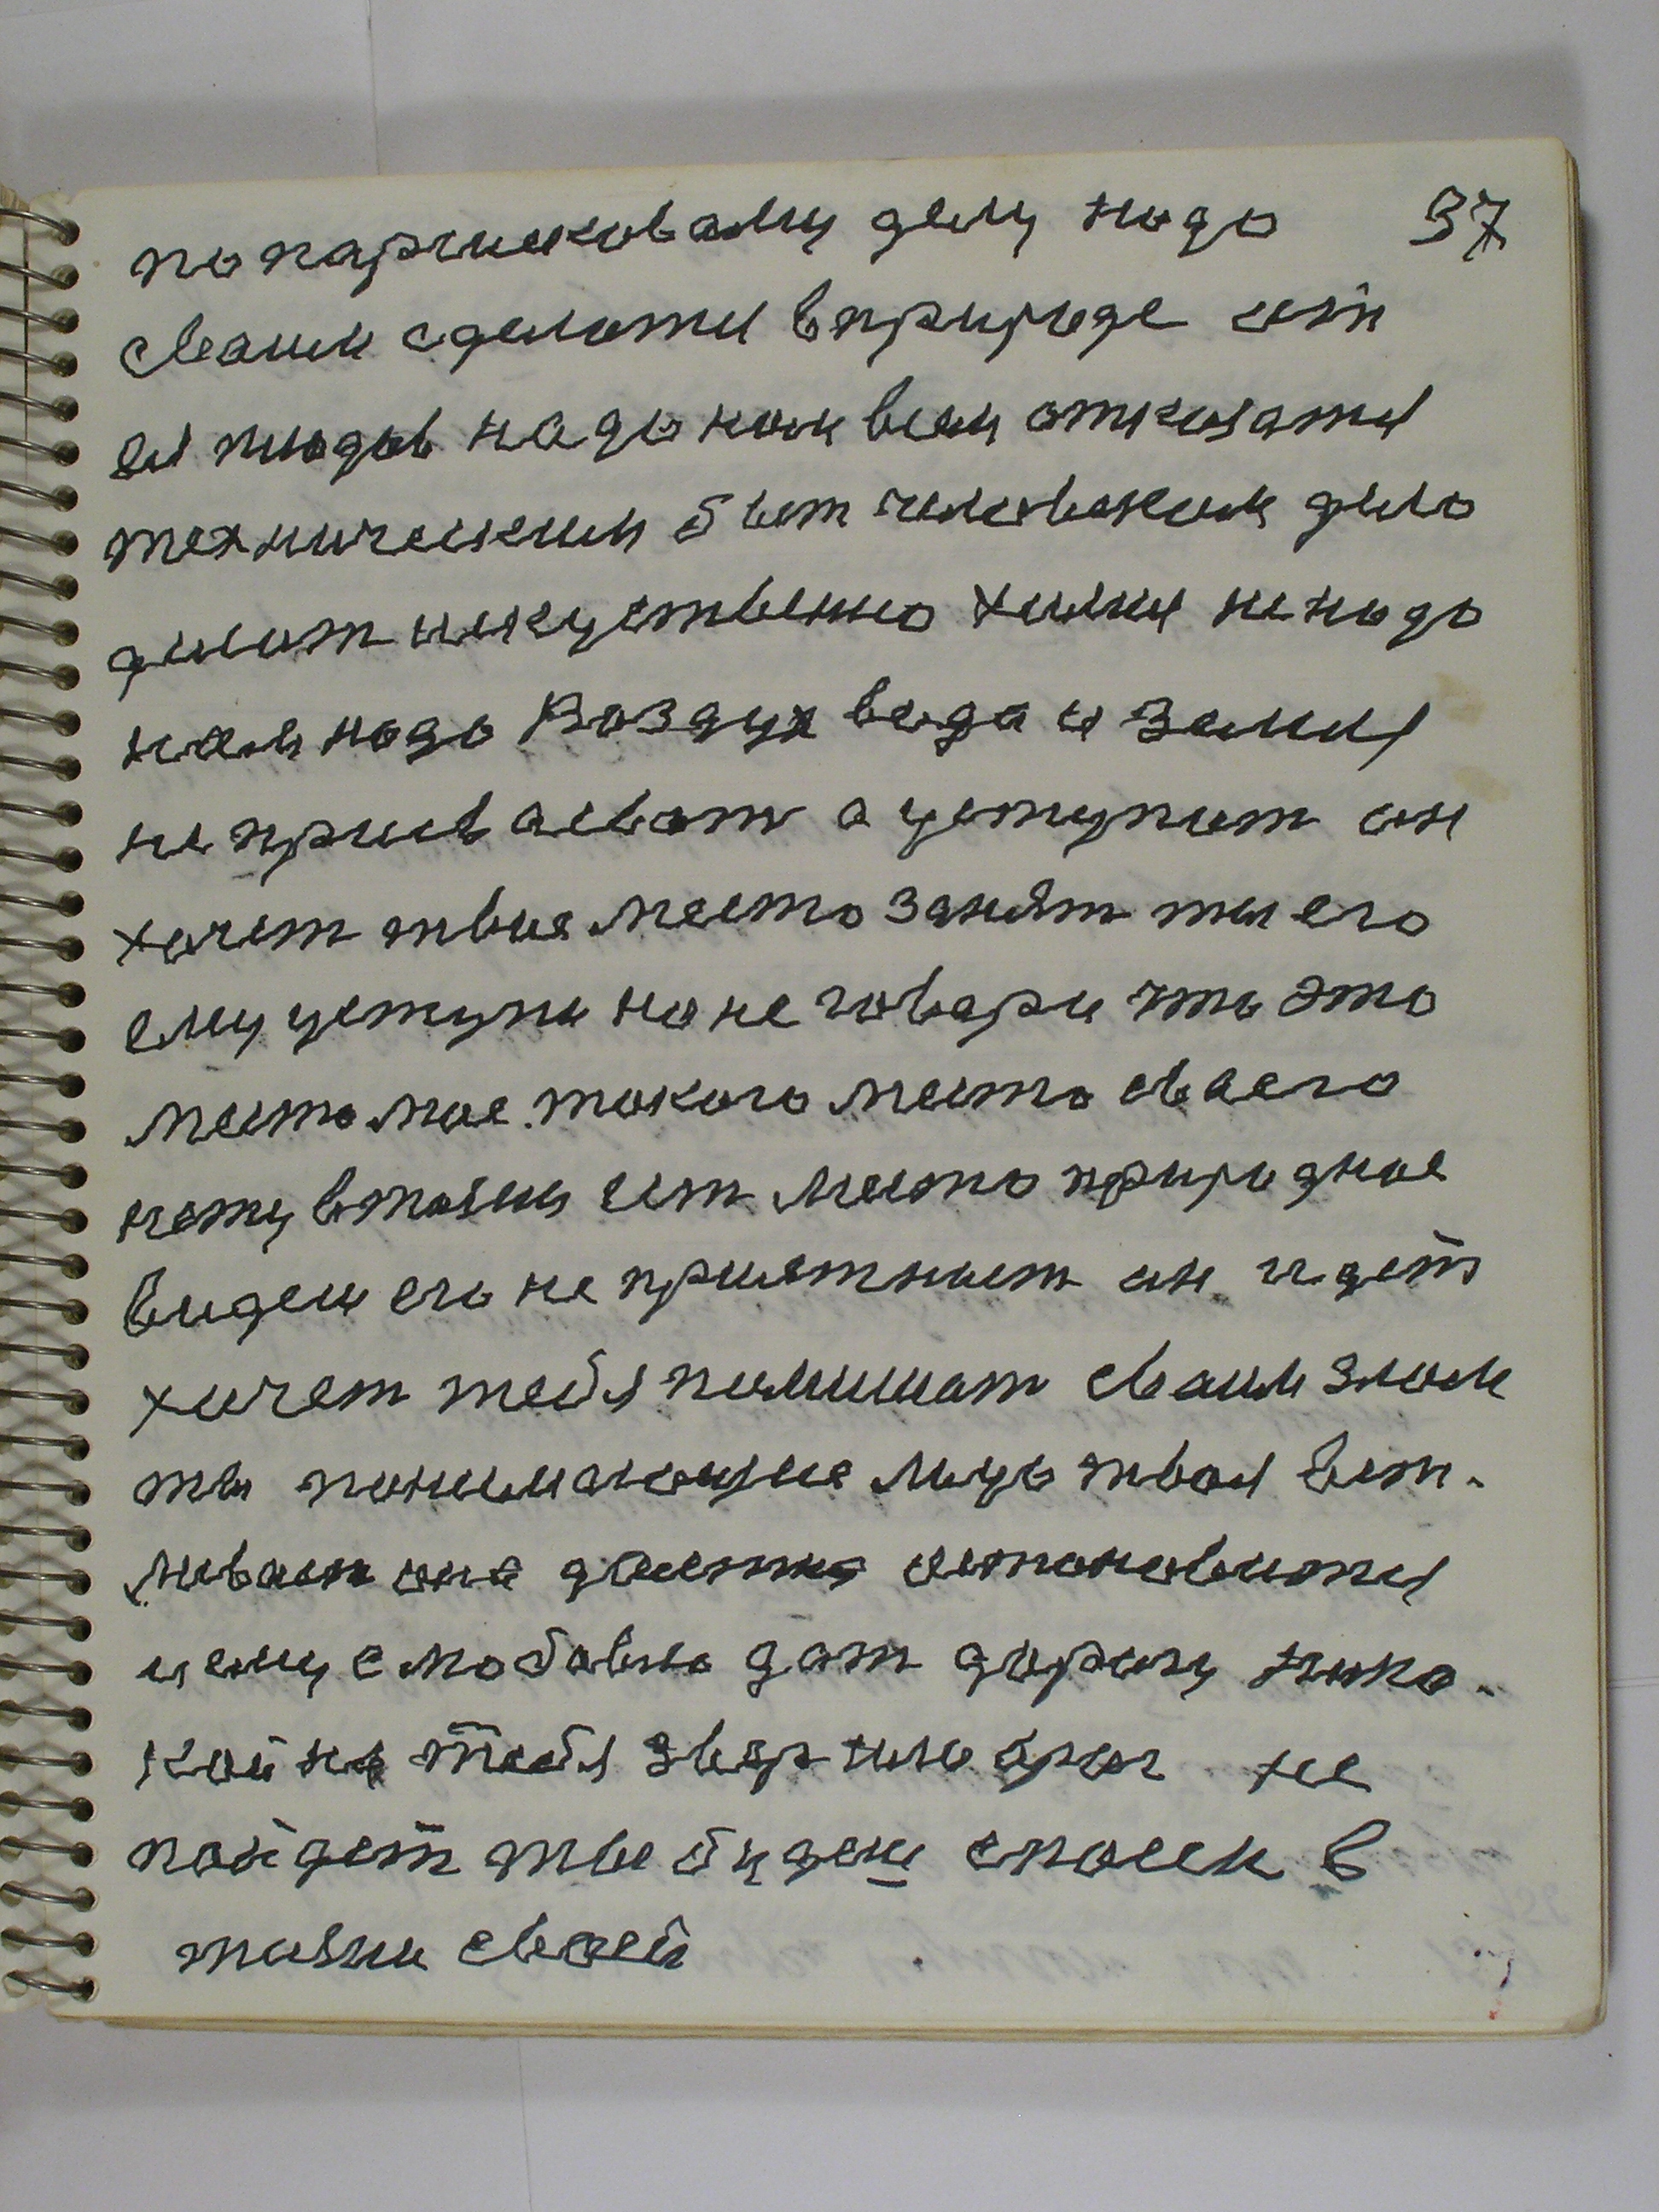 по паршиковаму делу надо 37
сваим сделатся в природе от
ея плодов надо нам всем отказатся
технический бьет человеком дело
дилат искуственно химия не надо
нам надо Воздух вода и Земля
не присваеват а уступит он
хочет твое место занят ты его
ему уступи но не говари что это
место мое. такого место сваего
нету втаяки ест место природное
видеш его не приятност он идет
хочет тебя помишат сваим злом
ты понимающие лицо твоя вет.
ливаст она даетъ астоновится
и ему с любовью дат дорогу ника-
кой на тебя звер или враг не
пойдет ты будеш споеен в
таяки сваей